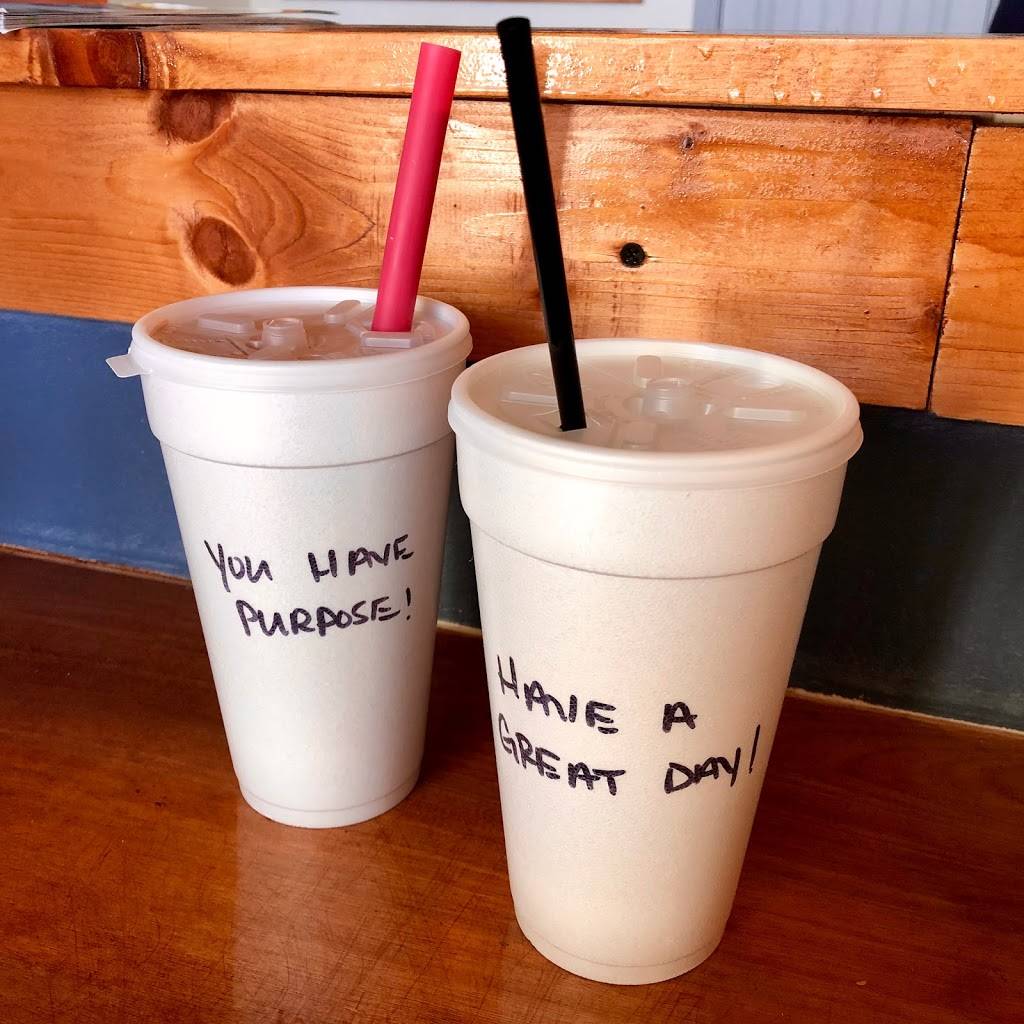 YOU HAVE
PURPOSE!
HAVE A
GREAT DAY!